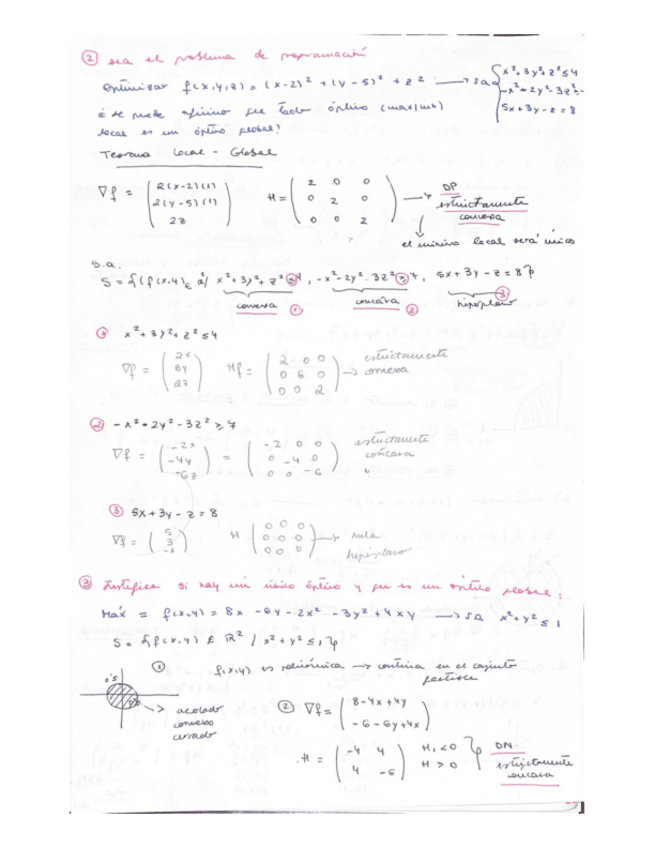 ② sea el problema de programación
Optimizar f(x,y,z) = (x-2)² + (y-5)² + z² → s.a { x²+3y²+z² ≤ 4
-x²-2y²-3z²
5x+3y-z = 8
¿se puede afirmar que todo óptimo (max/min)
local es un óptimo global?
Teorema Local - Global
∇f = ( 2(x-2)(1) 2(y-5)(1) 2z ) H = ( 2 0 0 0 2 0 0 0 2 ) → DP estrictamente convexa
el mínimo local será único
s.a.
x²+3y²+z² ≤ 4, -x²-2y²-3z² ≥ , 5x+3y-z = 8
convexa ① cóncava ② hiperplano ③
① x²+3y²+z² ≤ 4
∇f = ( 2x 6y 2z ) Hf = ( 2 0 0 0 6 0 0 0 2 ) → estrictamente convexa
② -x²-2y²-3z² ≥
∇f = ( -2x -4y -6z ) = ( -2 0 0 0 -4 0 0 0 -6 ) estrictamente cóncava
③ 5x+3y-z = 8
∇f = ( 5 3 -1 ) H ( 0 0 0 0 0 0 0 0 0 ) → nula hiperplano
③ Justifica si hay un único óptimo y que es un óptimo global:
Máx = f(x,y) = 8x - 6y - 2x² - 3y² + 4xy → s.a x²+y² ≤ 1
S = { f(x,y) ∈ ℝ² / x²+y² ≤ 1 }
① f(x,y) es polinómica → continua en el conjunto factible
→ acotado convexo cerrado
② ∇f = ( 8-4x+4y -6-6y+4x )
H = ( -4 4 4 -6 ) H₁<0 H>0 } DN estrictamente cóncava